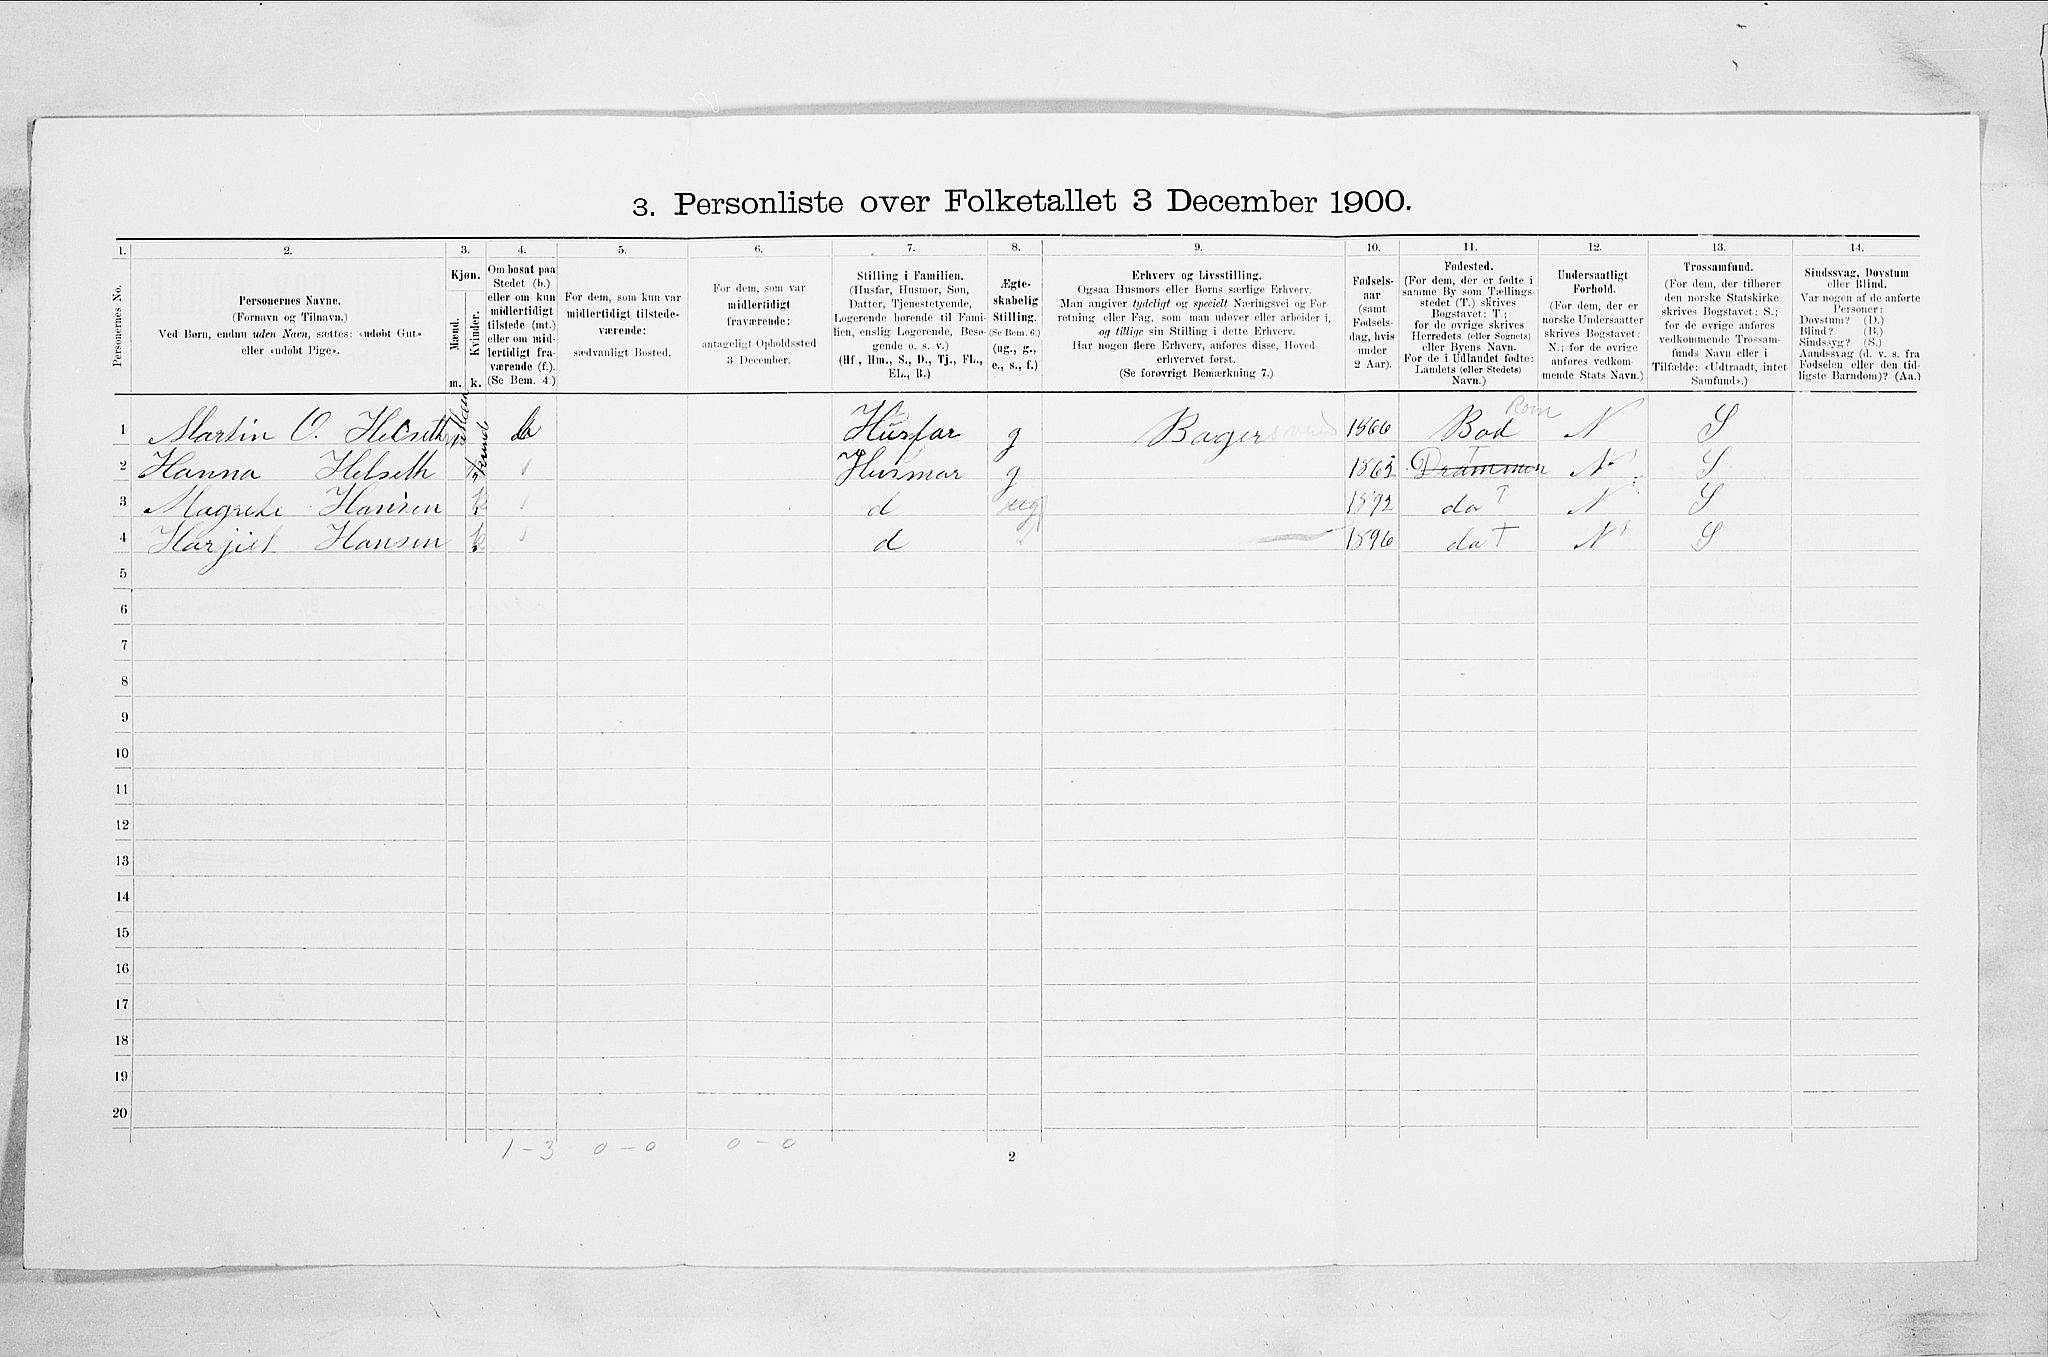 3. Personliste over Folketallet 3 December 1900.
1. 2. 3. 4. 5. 6. 7. 8. 9. 10. 11. 12. 13. 14.
Personernes No.
Personernes Navne.
(Fornavn og Tilnavn.)
Ved Børn, endnu uden Navn, sættes: «udøbt Gut»
eller «udøbt Pige».
Kjøn.
Mænd.
Kvinder.
m. k.
Om bosat paa
Stedet (b.)
eller om kun
midlertidigt
tilstede (mt.)
eller om mid-
lertidigt fra-
værende (f.).
(Se Bem. 4.)
For dem, som kun var
midlertidigt tilstede-
værende:
sædvanligt Bosted.
For dem, som var
midlertidigt
fraværende:
antageligt Opholdssted
3 December.
Stilling i Familien.
(Husfar, Husmor, Søn,
Datter, Tjenestetyende,
Logerende hørende til Fami-
lien, enslig Logerende, Besø-
gende o. s. v.)
(Hf., Hm., S., D., Tj., FL.,
EL., B.)
Ægte-
skabelig
Stilling.
(Se Bem. 6.)
(ug., g.,
e., s., f.)
Erhverv og Livsstilling.
Ogsaa Husmors eller Børns særlige Erhverv.
Man angiver tydeligt og specielt Næringsvei og For
retning eller Fag, som man udøver eller arbeider i,
og tillige sin Stilling i dette Erhverv.
Har nogen flere Erhverv, anføres disse, Hoved-
erhvervet først.
(Se forøvrigt Bemærkning 7.)
Fødsels-
aar
(samt
Fødsels-
dag, hvis
under
2 Aar).
Fødested.
(For dem, der er fødte i
samme By som Tællings-
stedet (T.) skrives
Bogstavet: T.;
for de øvrige skrives
Herredets (eller Sognets)
eller Byens Navn.
For de i Udlandet fødte:
Landets (eller Stedets)
Navn.)
Undersaatligt
Forhold.
(For dem, der er
norske Undersaatter
skrives Bogstavet:
N.; for de øvrige
anføres vedkom-
mende Stats Navn.)
Trossamfund.
(For dem, der tilhører
den norske Statskirke
skrives Bogstavet: S.;
for de øvrige anføres
vedkommende Trossam-
funds Navn eller i
Tilfælde: «Udtraadt, intet
Samfund».)
Sindssvag, Døvstum
eller Blind.
Var nogen af de anførte
Personer:
Døvstum? (D.)
Blind? (B.)
Sindssyg? (S.)
Aandssvag (d. v. s. fra
Fødselen eller den tid-
ligste Barndom)? (Aa.)
1 Martin O. Helseth b Husfar g Bager 1866 Bod N S
2 Hanna Helseth Husmor g Drammen T N S
3 Magrete Hansen k d ug 1892 do T N S
4 Hansen k d 1896 do T N S
5
6
7
8
9
10
11
12
13
14
15
16
17
18
19
20
1 - 3 0 - 0 0 - 0
2